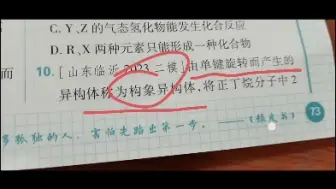 C. Y、Z 的气态氢化物能发生化合反应
D. R、X 两种元素只能形成一种化合物
而
10. [山东临沂 2023 二模]由单键旋转而产生的
异构体称为构象异构体,将正丁烷分子中2
多孤独的人,害怕先踏出第一步。——《绿皮书》
73